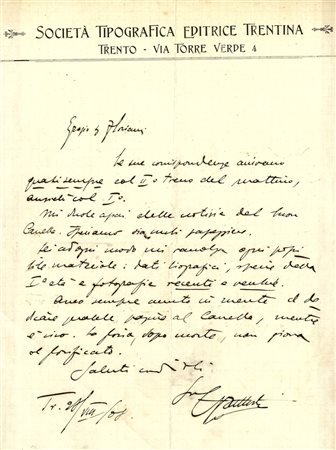 SOCIETÀ TIPOGRAFICA EDITRICE TRENTINA
TRENTO - VIA TORRE VERDE 4
Egregio Sg Floriani
Le sue corrispondenze arrivano
quasi sempre col II° treno del mattino,
anziché col I°.
Mi duole assai delle notizie del buon
Canella. Speriamo
ad ogni modo mi raccolga ogni possi
bile materiale: dati biografici, specie della
I° età e fotografia recenti e vecchie.
Avea sempre avuto in mente di de
dicare qualche pagina al Canella, mentre
è vivo. La gloria, dopo morto, non giova
al glorificato.
Saluti cordiali
Tr. 28/VIII/08
CBattisti